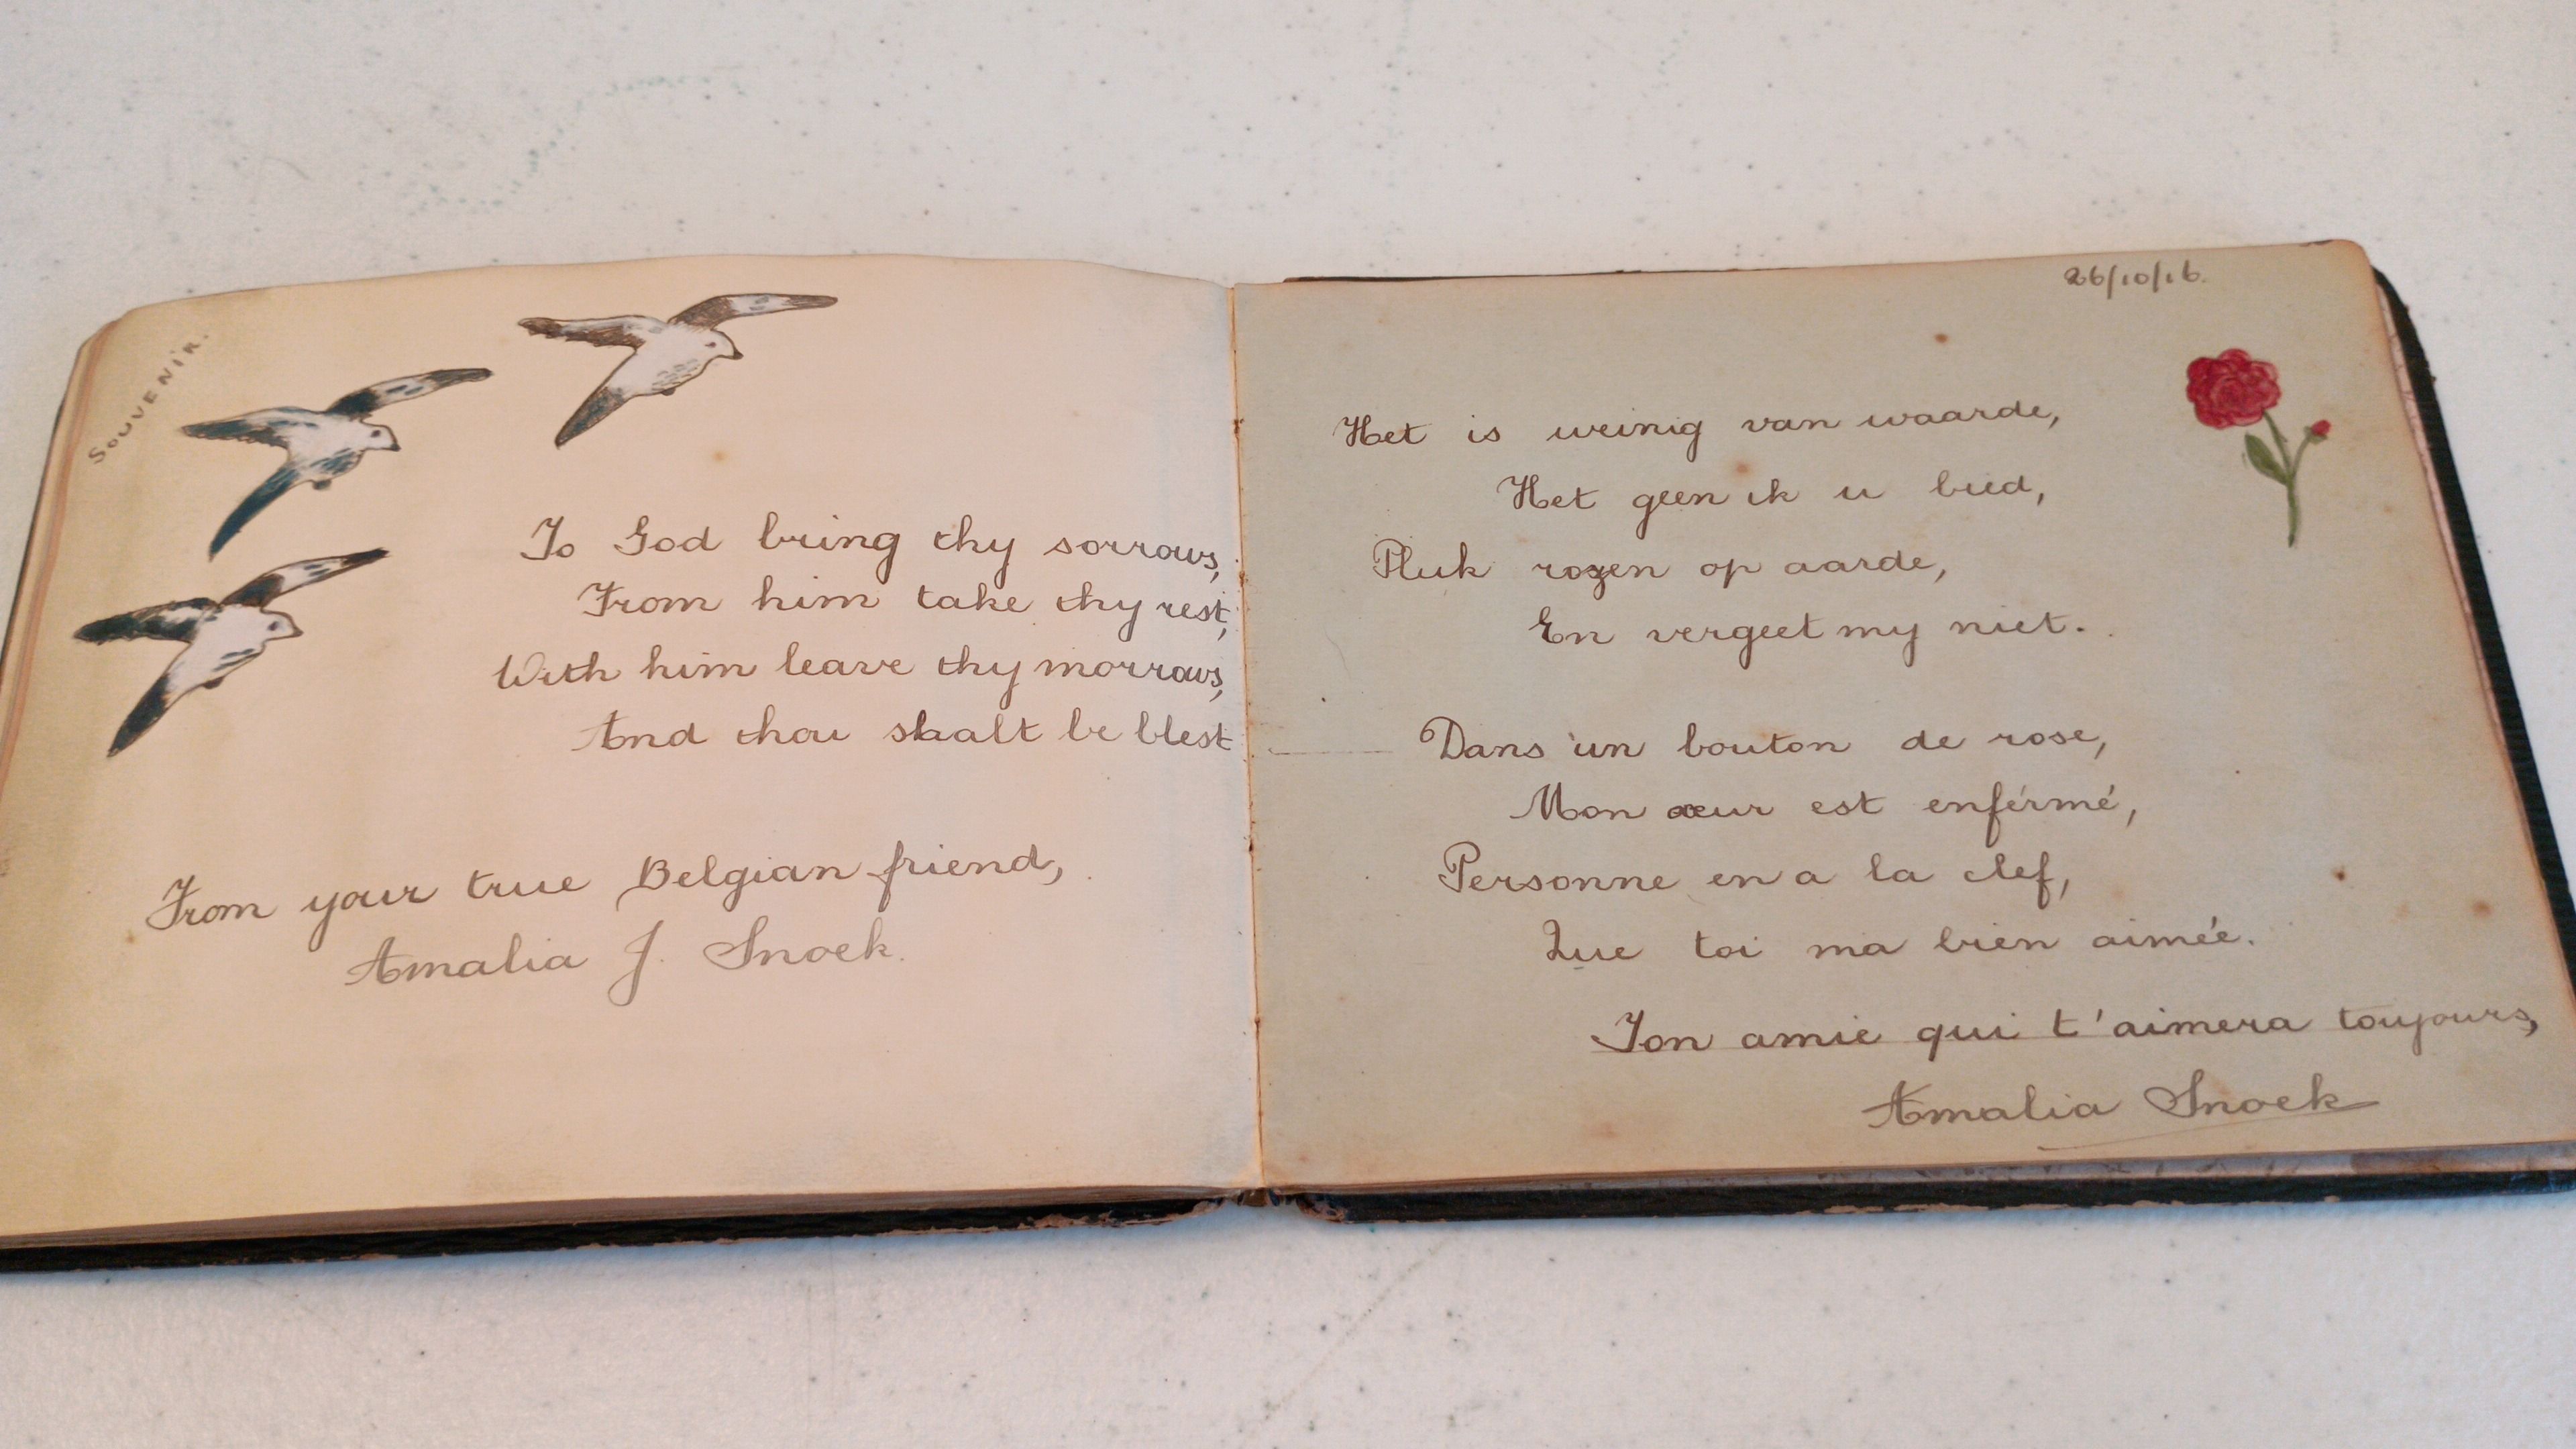 SOUVENIR.
To God bring thy sorrows,
From him take thy rest,
With him leave thy morrows,
And thou shalt be blest
From your true Belgian friend,
Amalia J. Snoek.
26/10/16.
Het is weinig van waarde,
Het geen ik u bied,
Pluk rozen op aarde,
En vergeet my niet.
Dans un bouton de rose,
Mon cœur est enférmé,
Personne en a la clef,
Que toi ma bien aimée.
Ton amie qui t'aimera toujours,
Amalia Snoek